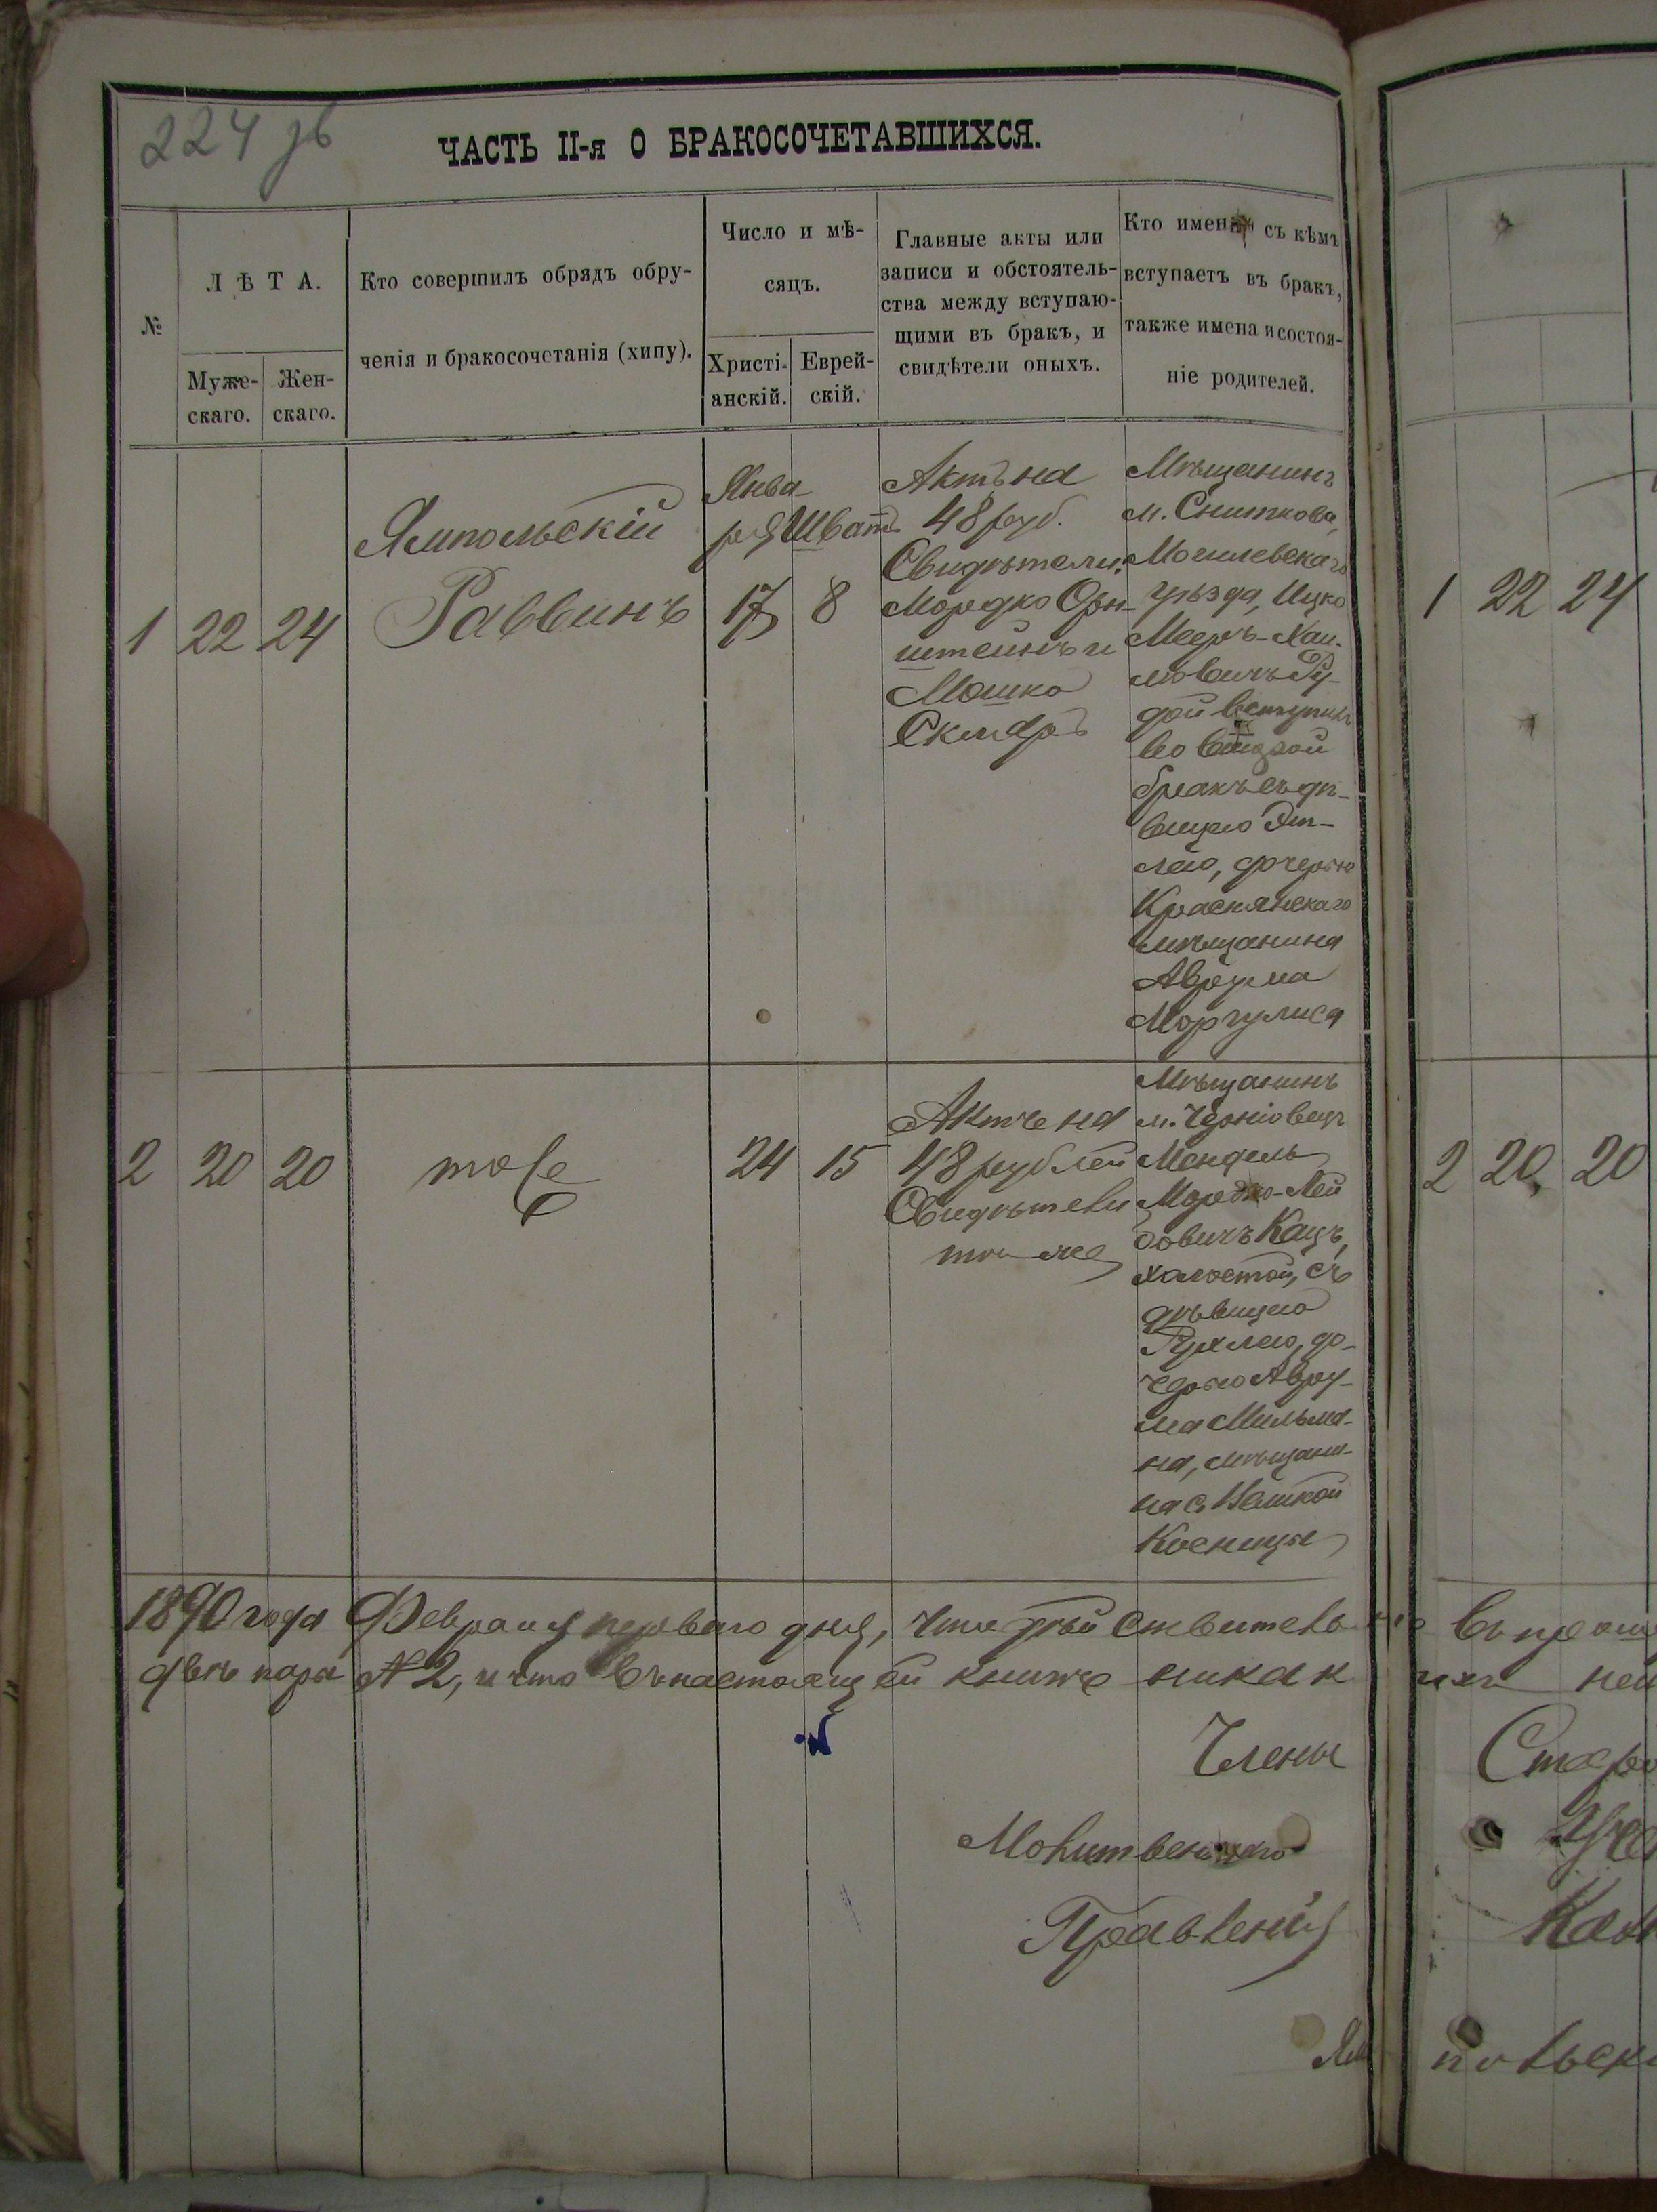 224 зв
ЧАСТЬ II-я О БРАКОСОЧЕТАВШИХСЯ.
№
ЛѢТА.
Муже-
скаго.
Жен-
скаго.
Кто совершилъ обрядъ обру-
ченія и бракосочетанія (хипу).
Число и мѣ-
сяцъ.
Христі-
анскій.
Еврей-
скій.
Главные акты или
записи и обстоятель-
ства между вступаю-
щими въ бракъ, и
свидѣтели оныхъ.
Кто именно съ кѣмъ
вступаетъ въ бракъ,
также имена и состоя-
ніе родителей.
1 22 24
Ямпольскій
Раввинъ
Янва-
ря
17
Шватъ
8
Актъ на
48 руб.
Свидѣтели:
Мордко Орн-
штейнъ и
Мошко
Скляръ
Мѣщанинъ
м. Сниткова,
Могилевскаго
уѣзда, Ицко
Мееръ-Хаи-
мовичъ Ру-
дой вступилъ
во
бракъ съ дѣ-
вицею Эт-
лею, дочерью
Краснянскаго
мѣщанина
Аврума
Моргулиса
2 20 20
тоже
24 15
Актъ на
48 рублей
Свидѣтели
тѣ же
Мѣщанинъ
м. Черніовецъ
Мендель
Мордко-Лей
бовичъ Кацъ,
холостой, съ
дѣвицею
Рухлею, до-
черью Авру-
ма Мильма-
на, мѣщани-
на с.
Косницы
1890 года Февраля перваго дня, что дѣйствительно въ
двѣ пары № 2, и что въ настоящей книжке никак ихъ
Члены
Молитвеннаго
Правленія
1 22 24
2 20, 20